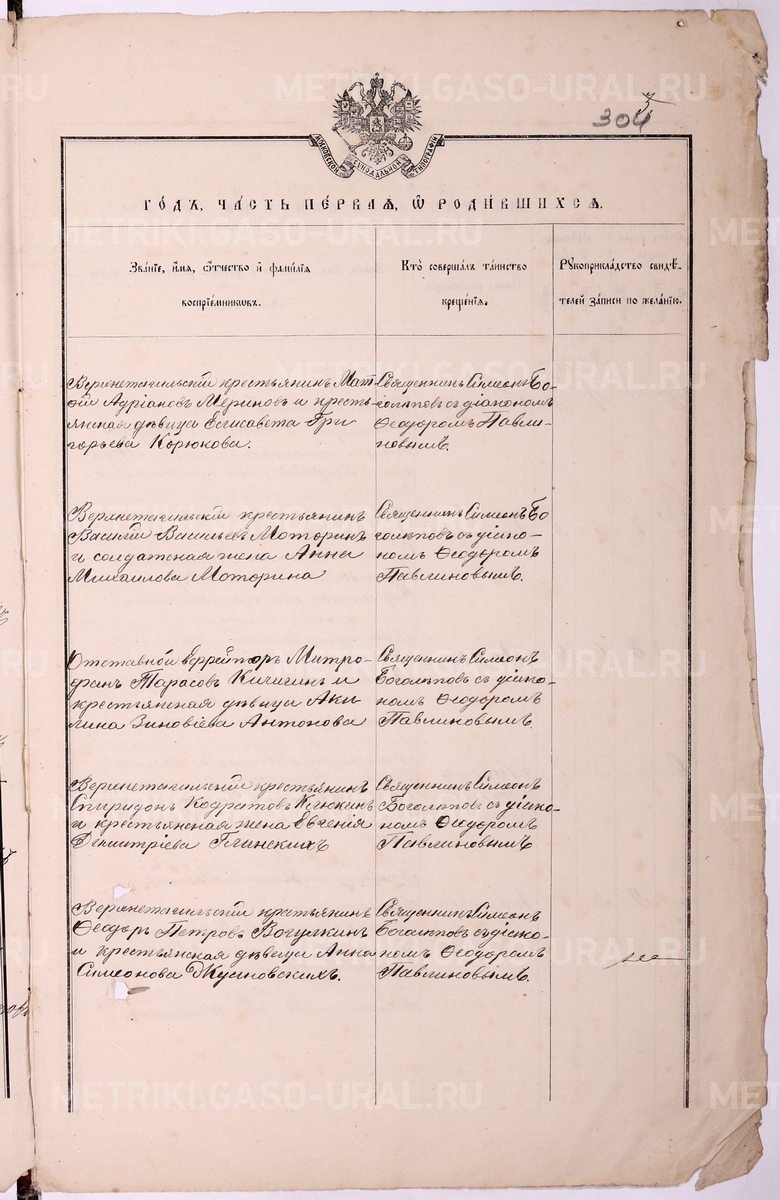 METRIKI.GASO-URAL.RU
304
МОСКОВСКОЙ СѴНОДАЛЬНОЙ ТИПОГРАФІИ
ГО́ДЪ, ЧА́СТЬ ПЕ́РВАѦ, Ѿ РОДИ́ВШИХСѦ.
Зва́нїе, и́мѧ, ѻ҆́тчество и҆ фамилїѧ
воспрїе́мниковъ.
Кто̀ соверша́лъ та́инство
креще́нїѧ.
Рꙋкоприкла́дство свидѣ́-
телей за́писи по жела́нїю.
Верхнетагильскій крестьянинъ Мат-
ѳій Адріановъ Мериновъ и кресть-
янская дѣвица Елисавета Гри
горьева Корюкова.
Священникъ Симеонъ Бо-
голѣповъ съ діакономъ
Ѳеодоромъ Павли-
новымъ.
Верхнетагильскій крестьянинъ
Василій Васильевъ Моторинъ
и солдатская жена Анна
Михаилова Моторина
Священникъ Симеонъ Бо
голѣповъ съ діако-
номъ Ѳеодоромъ
Павлиновымъ.
Отставной Ефрейторъ Митро-
фанъ Тарасовъ Кичигинъ и
крестьянская дѣвица Аки
лина Зиновіева Антонова
Священникъ Симеонъ
Боголѣповъ съ діако-
номъ Ѳеодоромъ
Павлиновымъ.
Верхнетагильскій крестьянинъ
Спиридонъ Кодратовъ
и крестьянская жена Евгенія
Димитріева Глинскихъ
Священникъ Симеонъ
Боголѣповъ съ діако-
номъ Ѳеодоромъ
Павлиновымъ
Верхнетагильскій крестьянинъ
Ѳеодоръ Петровъ Вогулкинъ
и крестьянская дѣвица Анна
Симеонова
Священникъ Симеонъ
Боголѣповъ съ діако-
номъ Ѳеодоромъ
Павлиновымъ.
METRIKI.GASO-URAL.RU